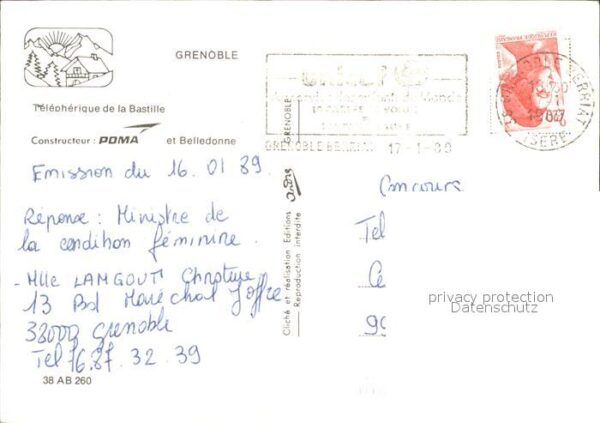 GRENOBLE
Téléphérique de la Bastille
Constructeur : POMA et Belledonne
Emission du 16.01 89.
Réponse : Ministre de
la condition féminine.
- Mlle LAMGOUTI Christine
13 Bd Maréchal Joffre
38000 Grenoble
Tel 76.87.32.39
38 AB 260
GRENOBLE
17-1-89
ISERE
REPUBLIQUE FRANÇAISE
GRENOBLE
Cliché et réalisation Editions
Reproduction interdite
Concours
Tel
Ce
99
privacy protection
Datenschutz